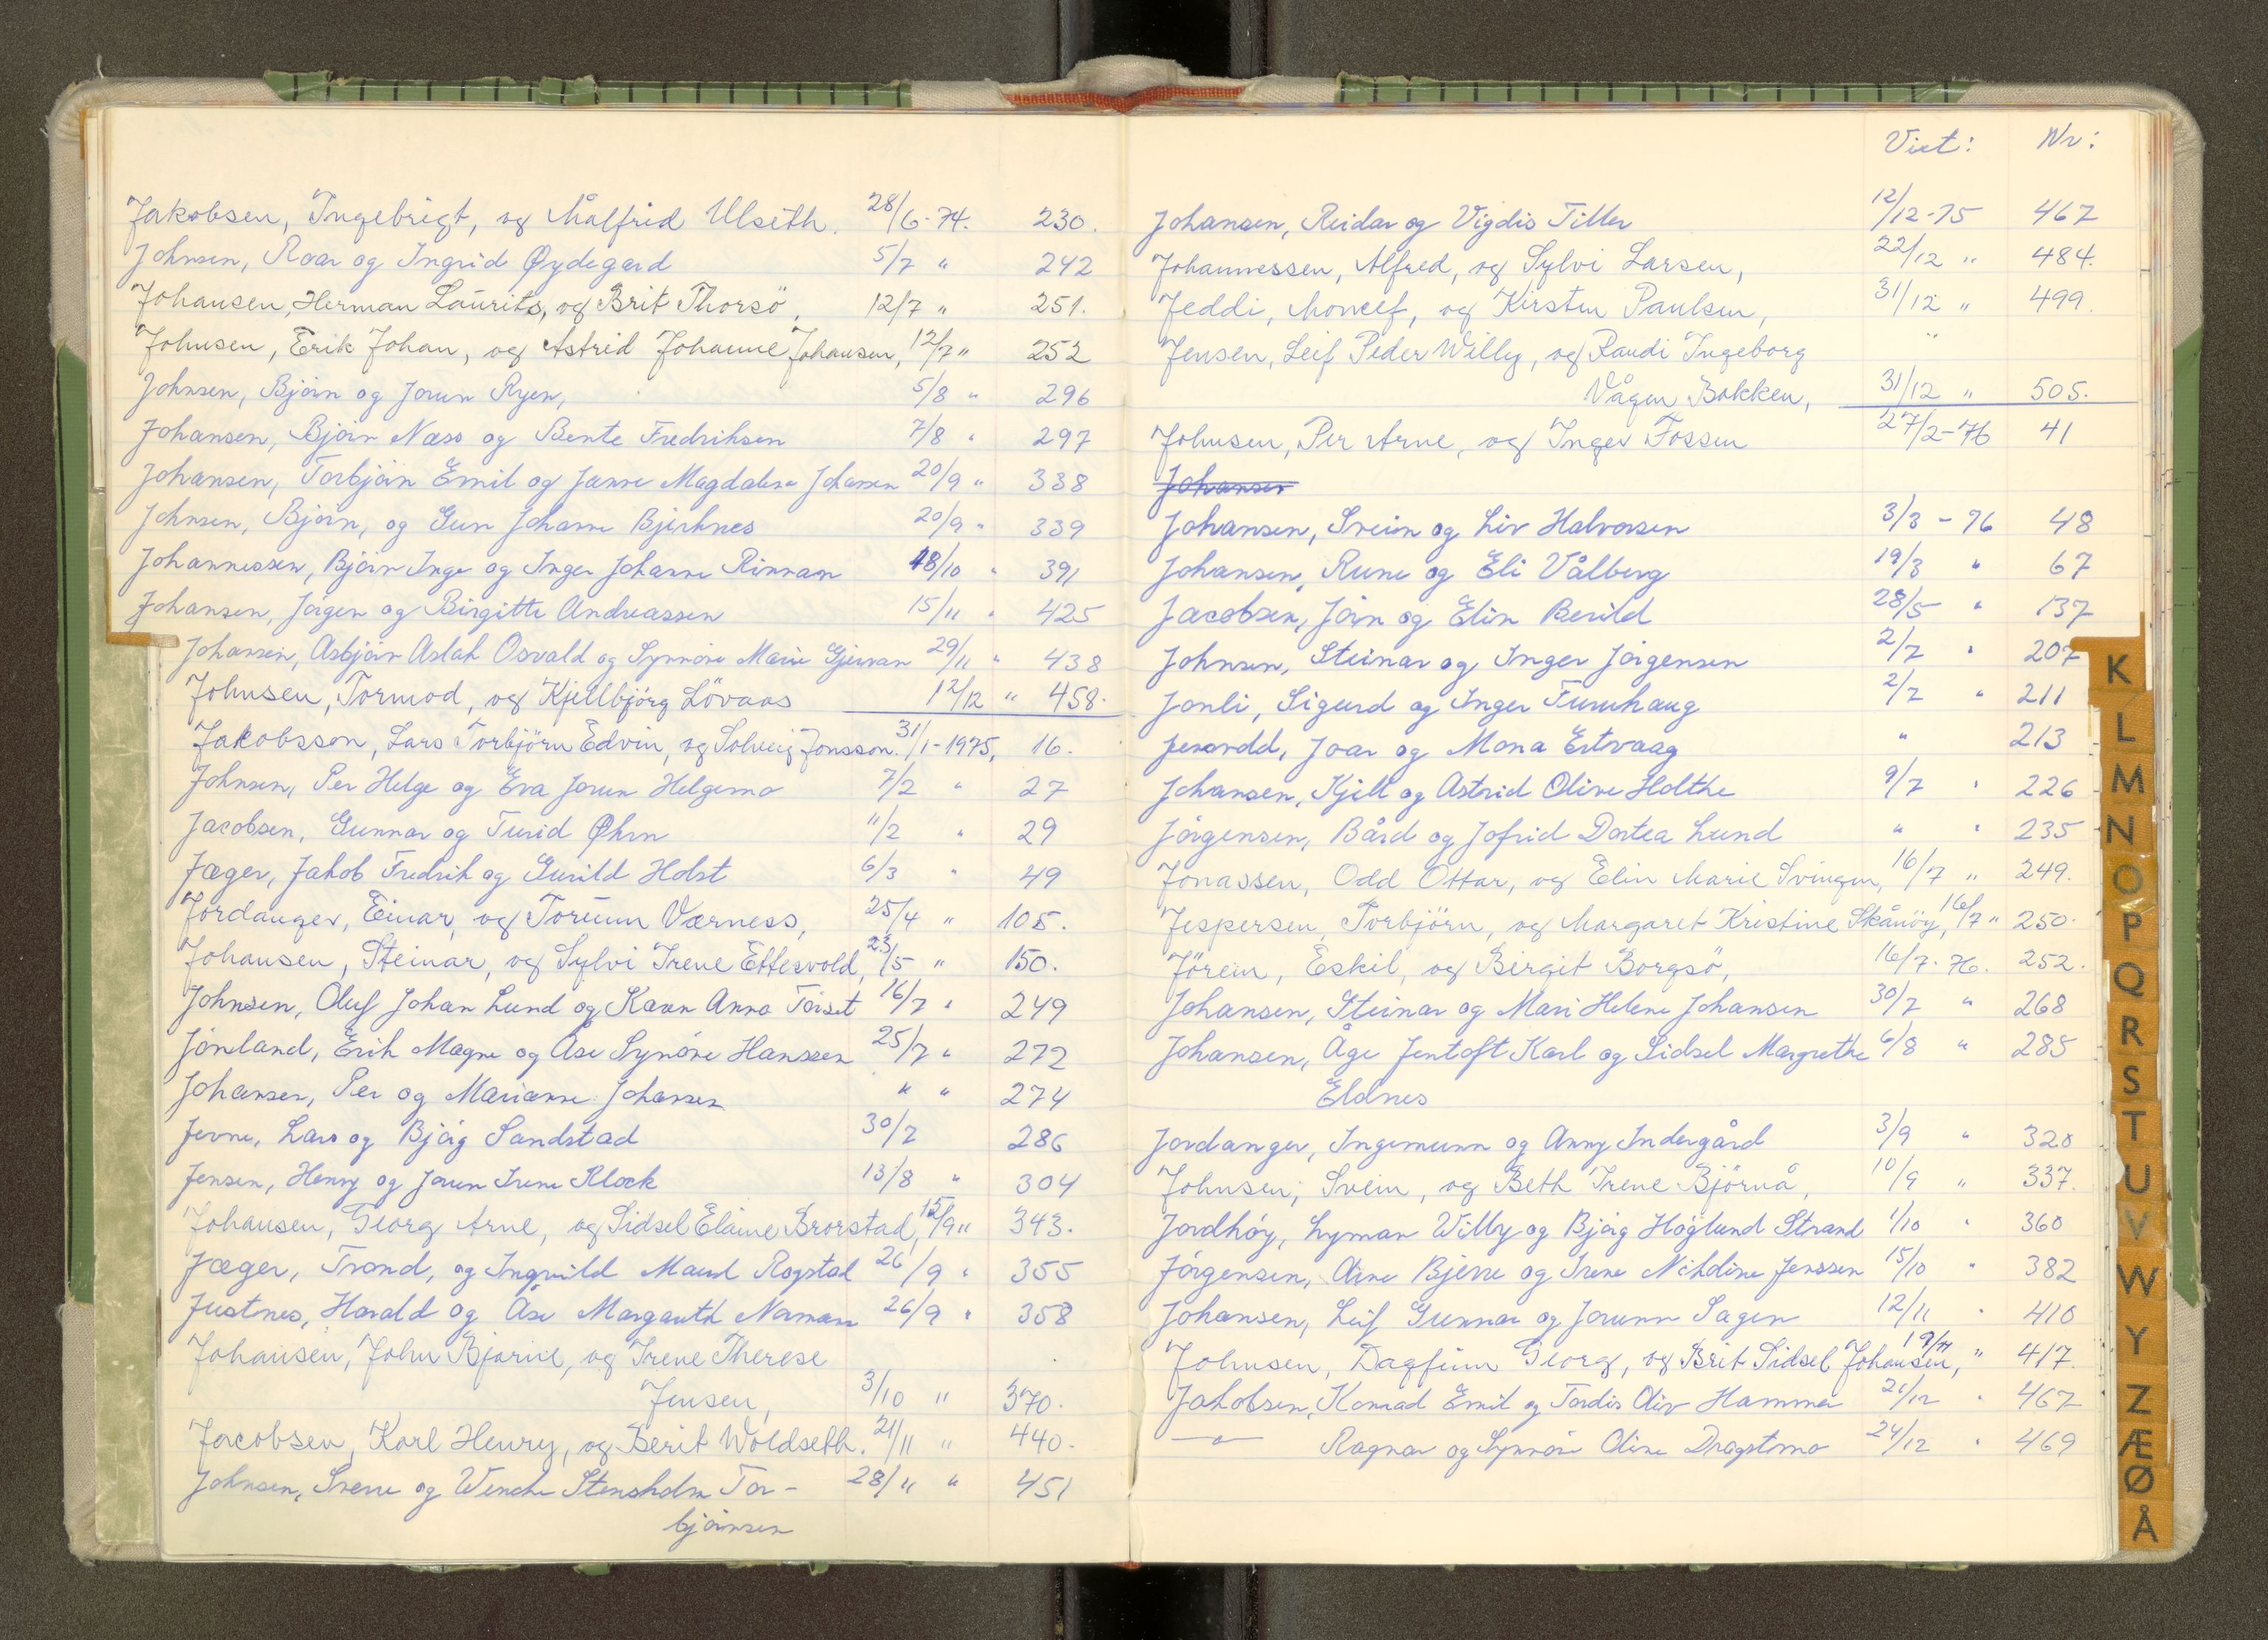 Jakobsen, Ingebrigt, og Målfrid Ulseth. 28/6-74. 230.
Johnsen, Roar og Ingrid Øydegard 5/7 " 242
Johansen, Herman Laurits, og Brit Thorsö, 12/7 " 251.
Johnsen, Erik Johan, og Astrid Johanne Johansen, 12/7 " 252
Johnsen, Bjørn og Jorun Ryen, 5/8 " 296
Johansen, Bjørn Næss og Bente Fredriksen 7/8 " 297
Johansen, Torbjørn Emil og Janne Magdalena Johansen 20/9 " 338
Johnsen, Bjørn, og Gun Johanne Bjerknes 20/9 " 339
Johannessen, Bjørn Inge og Inger Johanne Rinnan 18/10 " 391
Johansen, Jørgen og Birgitte Andreassen 15/11 " 425
Johansen, Asbjørn Aslak Osvald og Synnøve Marie Gjervan 29/11 " 438
Johnsen, Tormod, og Kjellbjörg Lövaas 12/12 " 458.
Jakobsson, Lars Torbjörn Edvin, og Solveig Jonsson. 31/1-1975, 16.
Johnsen, Per Helge og Eva Jorun Helgemo 7/2 " 27
Jacobsen, Gunnar og Turid Øhrn 11/2 " 29
Jæger, Jakob Fredrik og Gurild Holst 6/3 " 49
Jordanger, Einar, og Torunn Værness, 25/4 " 105.
Johansen, Steinar, og Sylvi Irene Ettesvold, 23/5 " 150.
Johnsen, Oluf Johan Lund og Karen Anna Tørset 16/7 " 249
Jønland, Erik Magne og Åse Synøve Hanssen 25/7 " 272
Johansen, Per og Marianne Johansen " " 274
Jevne, Lars og Bjørg Sandstad 30/7 286
Jensen, Henry og Jorun Irene Klock 13/8 " 304
Johansen, Georg Arne, og Sidsel Elaine Brorstad, 12/9 " 343.
Jæger, Trond, og Ingvild Maud Rogstad 26/9 " 355
Justnes, Harald og Åse Margareth Norman 26/9 " 358
Johansen, John Bjarne, og Irene Therese
Jensen, 3/10 " 370.
Jacobsen, Karl Henry, og Berit Woldseth. 21/11 " 440.
Johnsen, Sverre og Wenche Stensholm Tor- 28/11 " 451
bjørnsen
Viet: Nr:
Johansen, Reidar og Vigdis Tiller 12/12-75 467
Johannessen, Alfred, og Sylvi Larsen, 22/12 " 484.
Jeddi, Moncef, og Kirsten Paulsen, 31/12 " 499.
Jensen, Leif Peder Willy, og Randi Ingeborg "
Vågen Bokken, 31/12 " 505.
Johnsen, Per Arne, og Inger Fossen 27/2-76 41
Johansen
Johansen, Svein og Liv Halvorsen 3/3 - 76 48
Johansen, Rune og Eli Vålberg 19/3 " 67
Jacobsen, Jørn og Elin Berild 28/5 " 137
Johnsen, Steinar og Inger Jørgensen 2/7 " 207
Jonli, Sigurd og Inger Furuhaug 2/7 " 211
Joar og Mona Ertvaag " 213
Johansen, Kjell og Astrid Oline Holthe 9/7 " 226
Jørgensen, Bård og Jofrid Dortea Lund " " 235
Jonassen, Odd Ottar, og Elin Marie Svingen, 16/7 " 249.
Jespersen, Torbjörn, og Margaret Kristine Skånöy, 16/7 " 250.
Jörein, Eskil, og Birgit Borgsö, 16/7-76. 252.
Johansen, Steinar og Mari Helene Johansen 30/7 " 268
Johansen, Åge Jentoft Karl og Sidsel Margrethe 6/8 " 285
Eldnes
Jordanger, Ingemunn og Anny Indergård 3/9 " 320
Johnsen, Svein, og Beth Irene Björnå, 10/9 " 337.
Jordhøy, Lyman Willy og Bjørg Høglund Strand 1/10 " 360
Jørgensen, Arne Bjerre og Irene Nikoline Jenssen 15/10 " 382
Johansen, Leif Gunnar og Jorunn Sagen 12/11 " 410
Johnsen, Dagfinn Georg, og Brit Sidsel Johansen, 19/11 " 417.
Jakobsen, Konrad Emil og Tordis Oliv Hammer 21/12 " 467
—"— Ragnar og Synnøve Oline Dragstmo 24/12 " 469
K
L
M
N
O
P
Q
R
S
T
U
V
W
Y
Z
Æ
Ø
Å